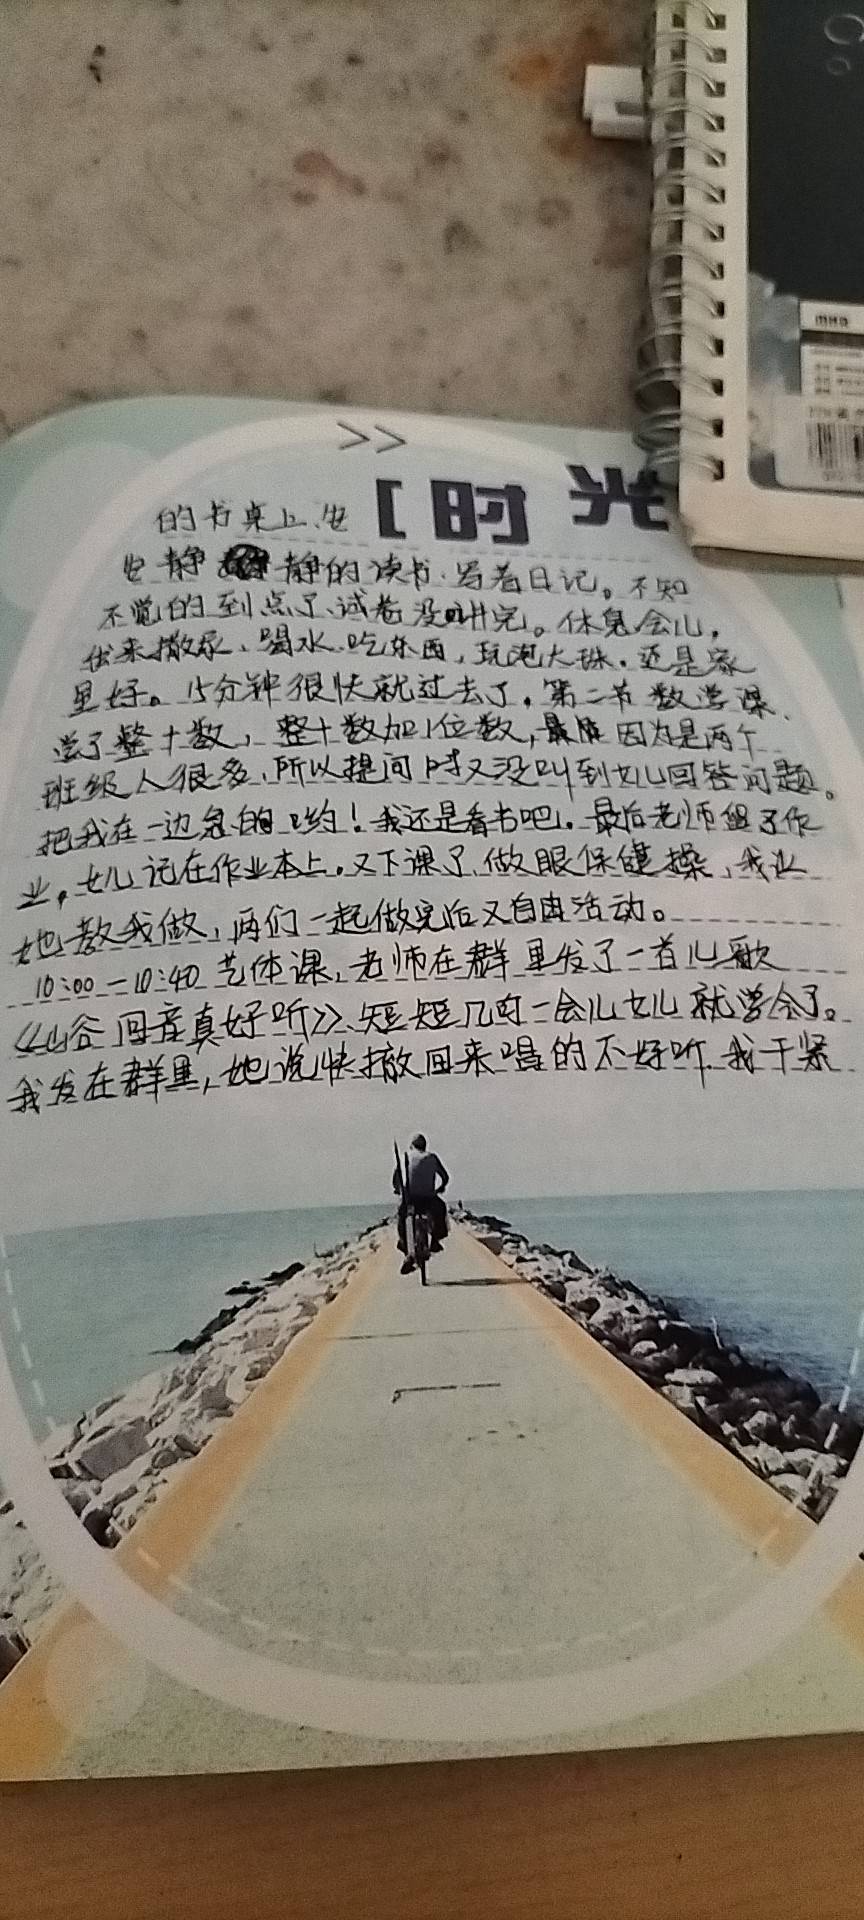 >>
[时光
的书桌上、安
安静静的读书.写着日记。不知
不觉的到点了、试卷没讲完。休息会儿，
起来撒尿、喝水.吃东西，玩泡大珠.还是家
里好。15分钟很快就过去了，第二节数学课、
学了整十数，整十数加1位数，因为是两个
班级人很多、所以提问时又没叫到女儿回答问题。
把我在一边急的哟！我还是看书吧。最后老师留了作
业，女儿记在作业本上。又下课了、做眼保健操、我让
她教我做，俩们一起做完后又自由活动。
10:00—10:40艺体课，老师在群里发了一首儿歌
《山谷回音真好听》、短短几句一会儿女儿就学会了。
我发在群里，她说快撤回来唱的不好听.我干紧